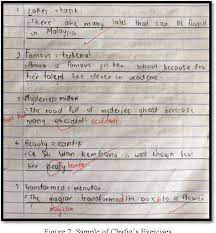 1. Lakes = tasik
- There are many lakes that can be found
in Malaysia
2. Famous = terkenal
- is famous in her school because for
her talent like clever in academic.
3. Mysterious = 
- The road full of mysteries ghost because
many accident accidents
4. Beauty = cantik
- Cik Siti Wan Kembang is well known for
her beauty
5. Transformed = menukar
- The magian transformed the box to a flower
magician
Figure 2. Sample of Chafia's Exercises